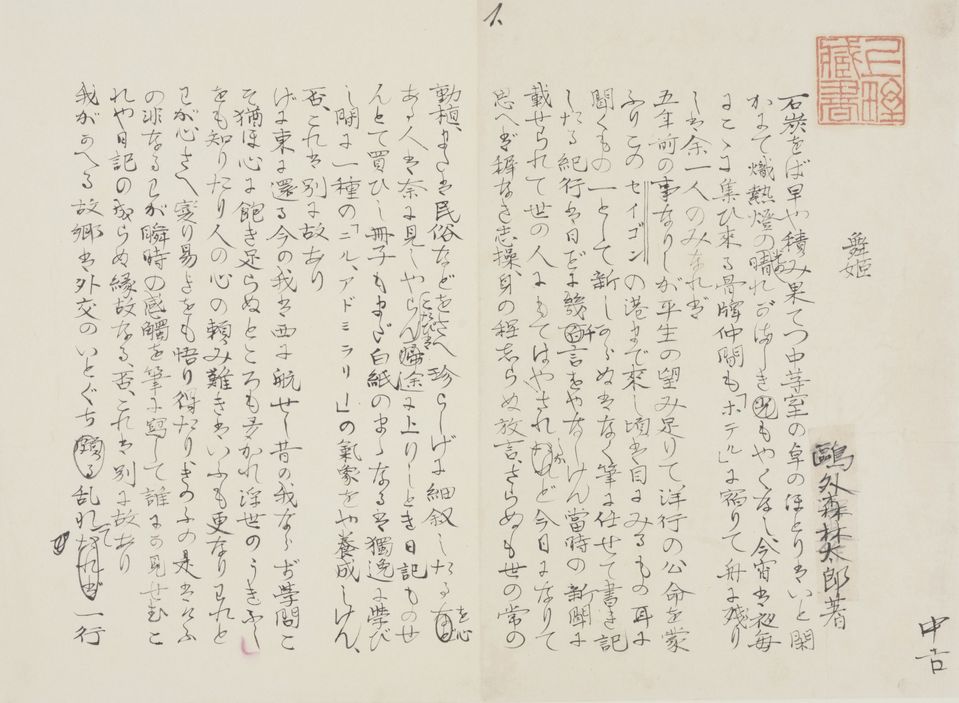 舞姫
鷗外森林太郎著
中吉
石炭をば早や積み果てつ中等室の卓のほとりはいと閑
かにて熾熱燈の晴れがましきも光もやくなし、今宵は夜毎
にこゝに集ひ來る骨牌仲間も「ホテル」に宿りて舟に殘り
しは余一人のみなれば
五年前の事なりしが平生の望み足りて洋行の公命を蒙
ふりこのセイゴンの港まで來し頃は目にみるもの耳に
聞くもの一として新しからぬはなく筆に任せて書き記
したる紀行は日ごとに幾千言をやなしけん當時の新聞に
載せられて世の人にもてはやされしかど今日になりて
思へば穉なき志操、身の程志らぬ放言、さらぬも世の常の
動植、または民俗などをさへ珍らしげに細叙したるを心
ある人は奈に見しやらん、こたびは途に上りしとき日記ものせ
んとて買ひし冊子もまだ白紙のまゝなるは獨逸に學び
し間に一種の「ニル、アドミラリー」の氣象をや養成しけん、
否、これは別に故あり
げに東に還る今の我は西に航せし昔の我ならず學問こ
そ猶ほ心に飽き足らぬところも多かれ浮世のうきふし
をも知りたり人の心の頼み難きはいふも更なりわれと
わが心さへ變り易きをも悟り得たりきのふの是はけふ
の非なるわが瞬時の感觸を筆に寫して誰にか見せむこ
れや日記の成らぬ縁故なる、否、これは別に故あり
我がかへる故郷は外交のいとぐち乱れて一行